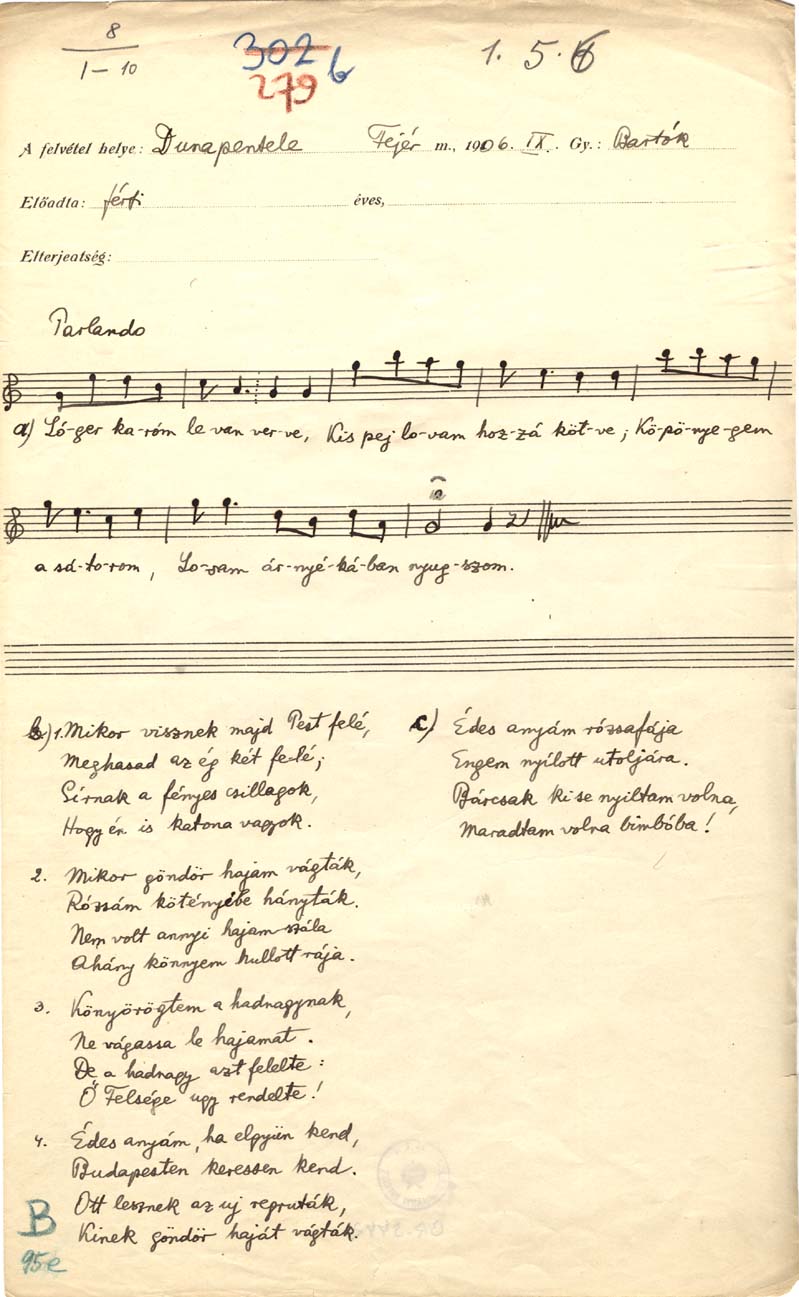 8
1-10
302
279
b
1. 5. 6
A felvétel helye: Dunapentele Fejér m., 1906. IX. Gy.: Bartók
Előadta: férfi éves,
Elterjedtség:
Parlando
a) Ló-ger ka-róm le van ver-ve, Kis pej lo-vam hoz-zá köt-ve; Kö-pö-nye-gem
a sá-to-rom, Lo-vam ár-nyé-ká-ban nyug-szom.
b) 1. Mikor visznek majd Pest felé,
Meghasad az ég két felé;
Sírnak a fényes csillagok,
Hogy én is katona vagyok.
2. Mikor göndör hajam vágták,
Rózsám kötényébe hányták.
Nem volt annyi hajam szála
Ahány könnyem hullott rája.
3. Könyörögtem a hadnagynak,
Ne vágassa le hajamat.
De a hadnagy azt felelte:
Ő Felsége ugy rendelte!
4. Édes anyám, ha elgyün kend,
Budapesten keressen kend.
Ott lesznek az uj regruták,
Kinek göndör haját vágták.
c) Édes anyám rózsafája
Engem nyílott utoljára.
Bárcsak ki se nyiltam volna,
Maradtam volna bimbóba!
B
95e